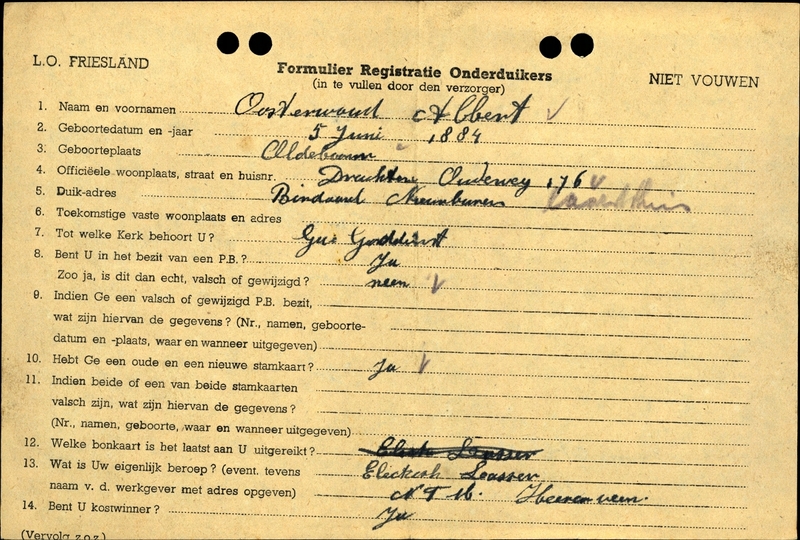 L.O. FRIESLAND
Formulier Registratie Onderduikers
(in te vullen door den verzorger)
NIET VOUWEN
1. Naam en voornamen Oosterwoud Albert
2. Geboortedatum en -jaar 5 Juni 1884
3. Geboorteplaats Oldeboorn
4. Officiëele woonplaats, straat en huisnr. Drachten Oudeweg 176
5. Duik-adres
6. Toekomstige vaste woonplaats en adres
7. Tot welke Kerk behoort U?
8. Bent U in het bezit van een P.B.? Ja
Zoo ja, is dit dan echt, valsch of gewijzigd? neen
9. Indien Ge een valsch of gewijzigd P.B. bezit,
wat zijn hiervan de gegevens? (Nr., namen, geboorte-
datum en -plaats, waar en wanneer uitgegeven)
10. Hebt Ge een oude en een nieuwe stamkaart? Ja
11. Indien beide of een van beide stamkaarten
valsch zijn, wat zijn hiervan de gegevens?
(Nr., namen, geboorte, waar en wanneer uitgegeven)
12. Welke bonkaart is het laatst aan U uitgereikt?
13. Wat is Uw eigenlijk beroep? (event. tevens Electrisch Lasser
naam v. d. werkgever met adres opgeven) N.T.M. Heerenveen.
14. Bent U kostwinner? Ja
(Vervolg z.o.z.)